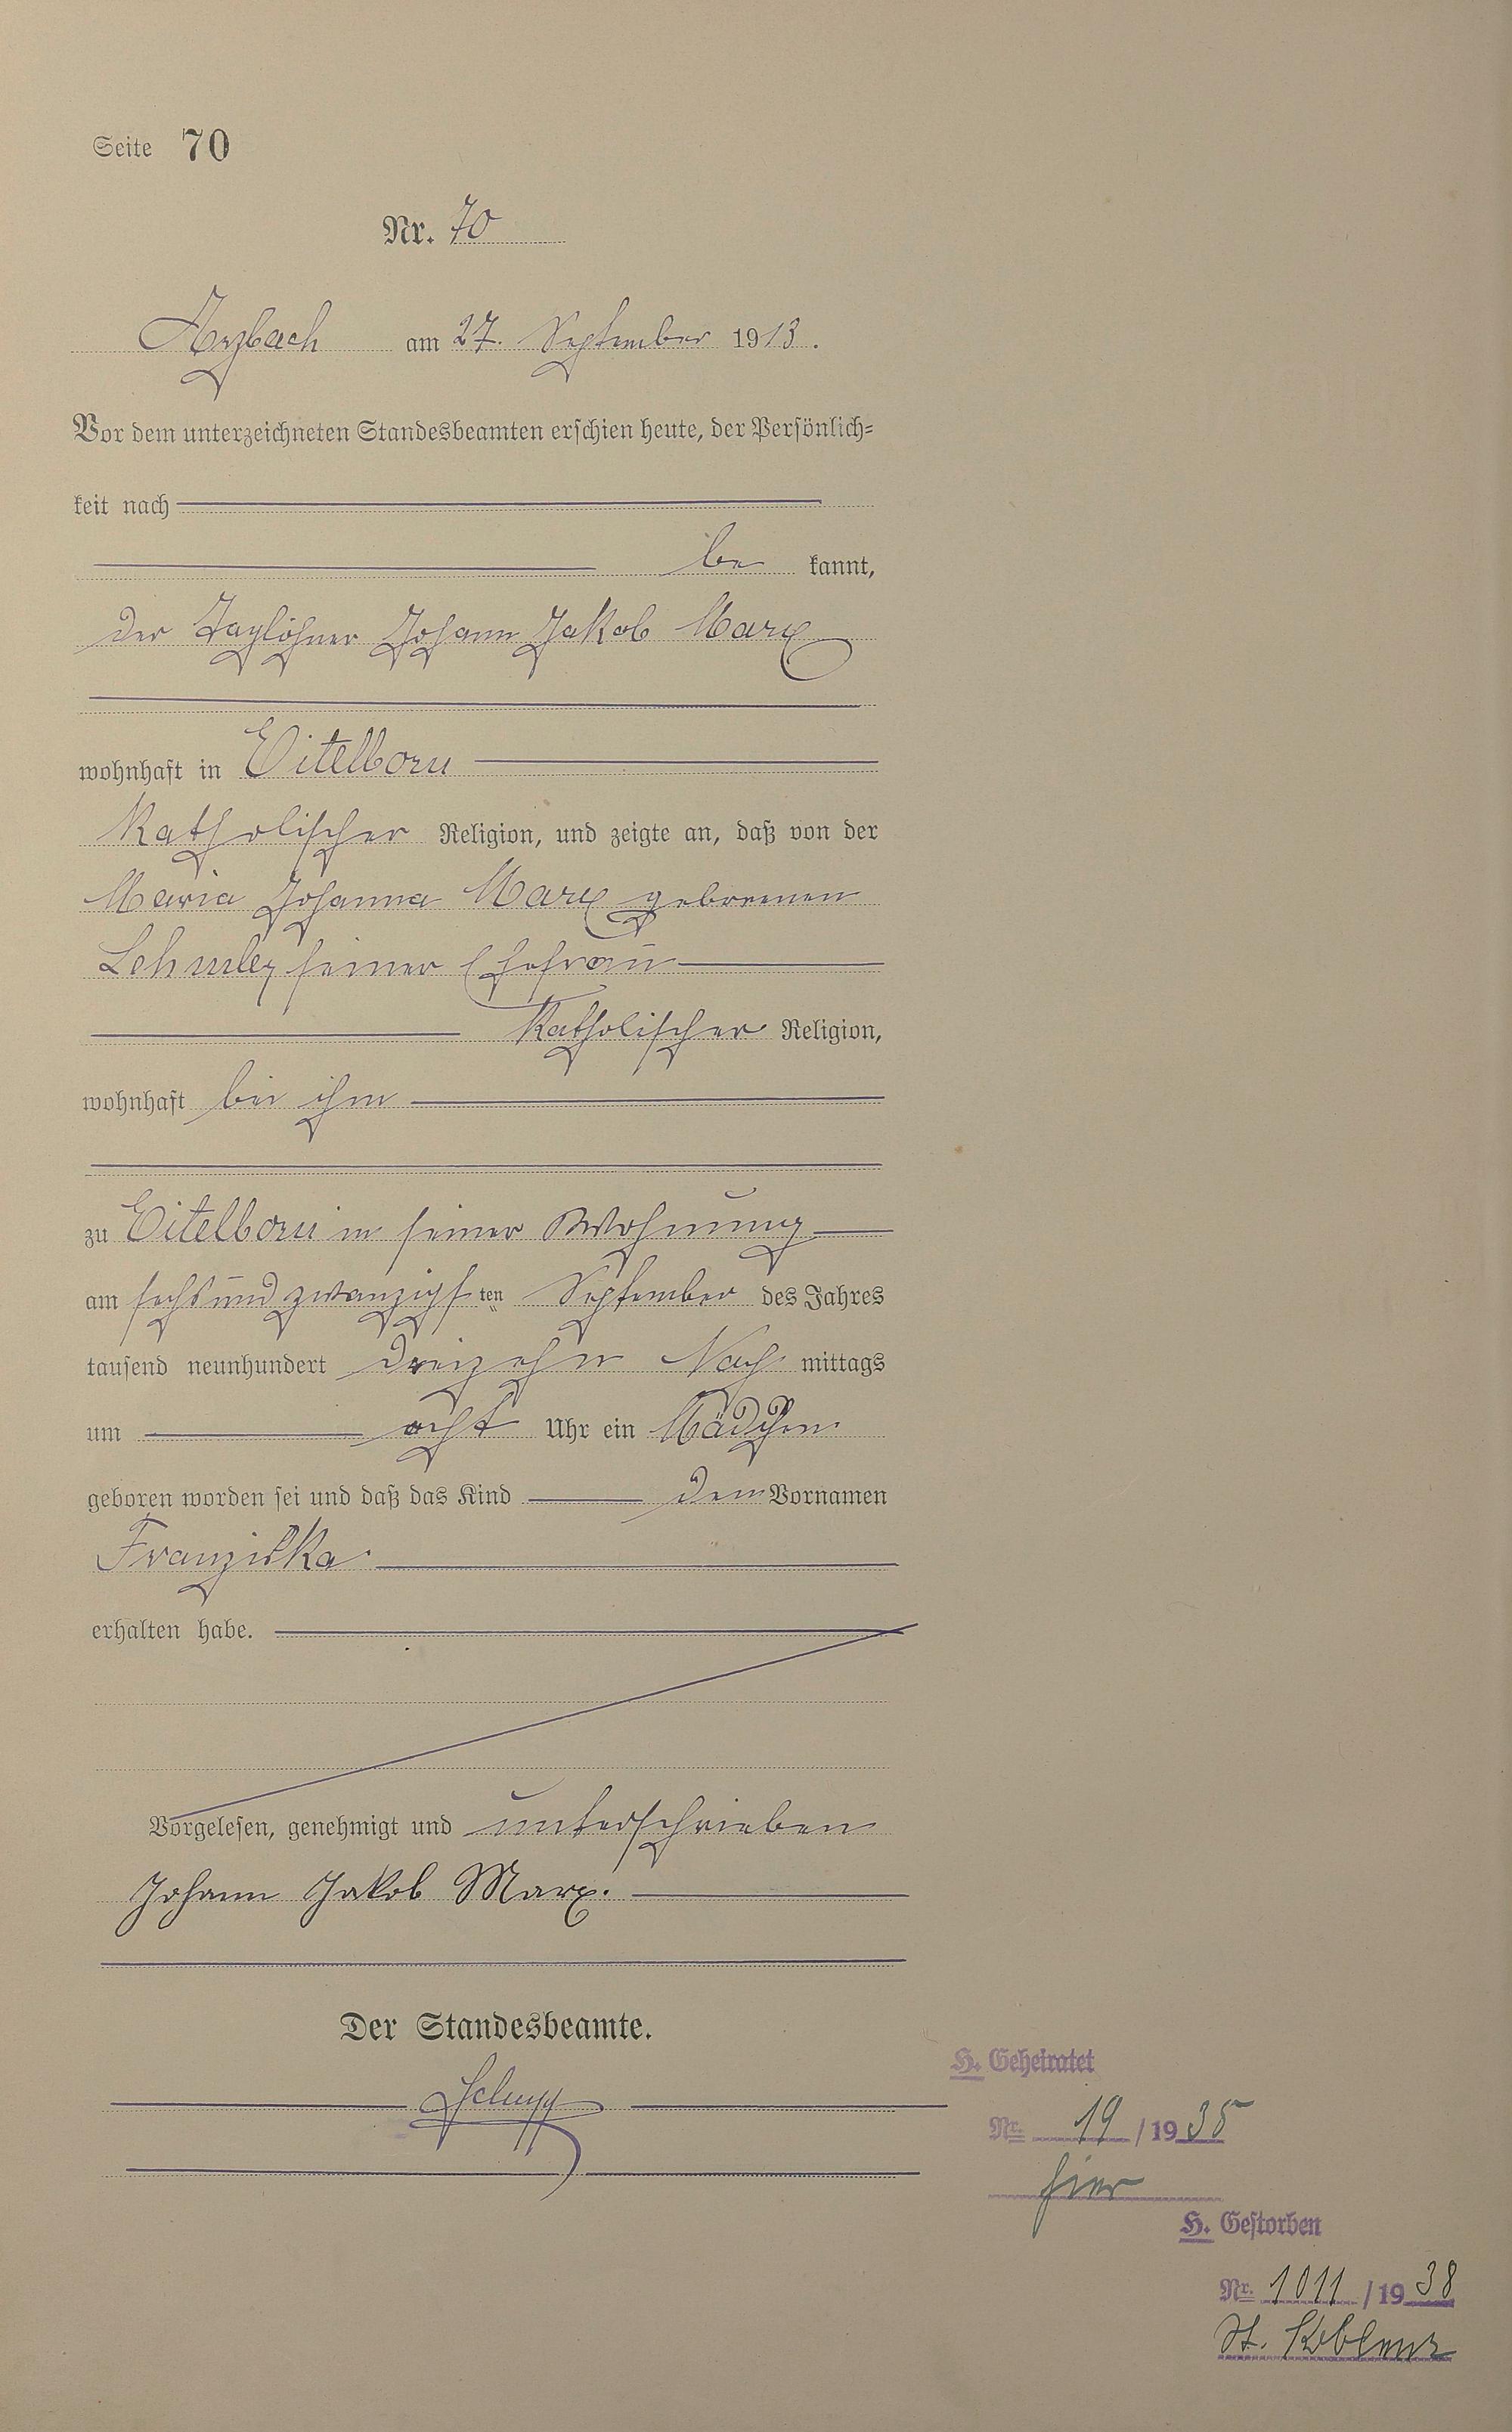 Seite 70
Nr. 70
Arzbach am 27. September 1913.
Vor dem unterzeichneten Standesbeamten erschien heute, der Persönlich-
keit nach
be kannt,
der Taglöhner Johann Jakob Marx
wohnhaft in Eitelborn
Katholischer Religion, und zeigte an, daß von der
Maria Johanna Marx geborenen
seiner Ehefrau
Katholischer Religion,
wohnhaft bei ihm
zu Eitelborn in seiner Wohnung
am sechsundzwanzigsten September des Jahres
tausend neunhundert dreizehn Nach mittags
um acht Uhr ein Mädchen
geboren worden sei und daß das Kind den Vornamen
Franziska
erhalten habe.
Vorgelesen, genehmigt und unterschrieben
Johann Jakob Marx.
Der Standesbeamte.
Schupp
H. Geheiratet
Nr. 19 / 1935
hier
H. Gestorben
Nr. 1011 / 1938
St. Koblenz